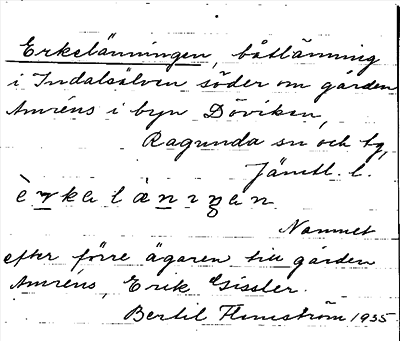 Erkelänningen, båtlänning
i Indalsälven söder om gården
Amréns i byn Döviken,
Ragunda sn och tg,
Jämtl. l.
èrkelàniŋen
Namnet
efter förre ägaren till gården
Amréns, Erik Gissler.
Bertil Flemström 1935